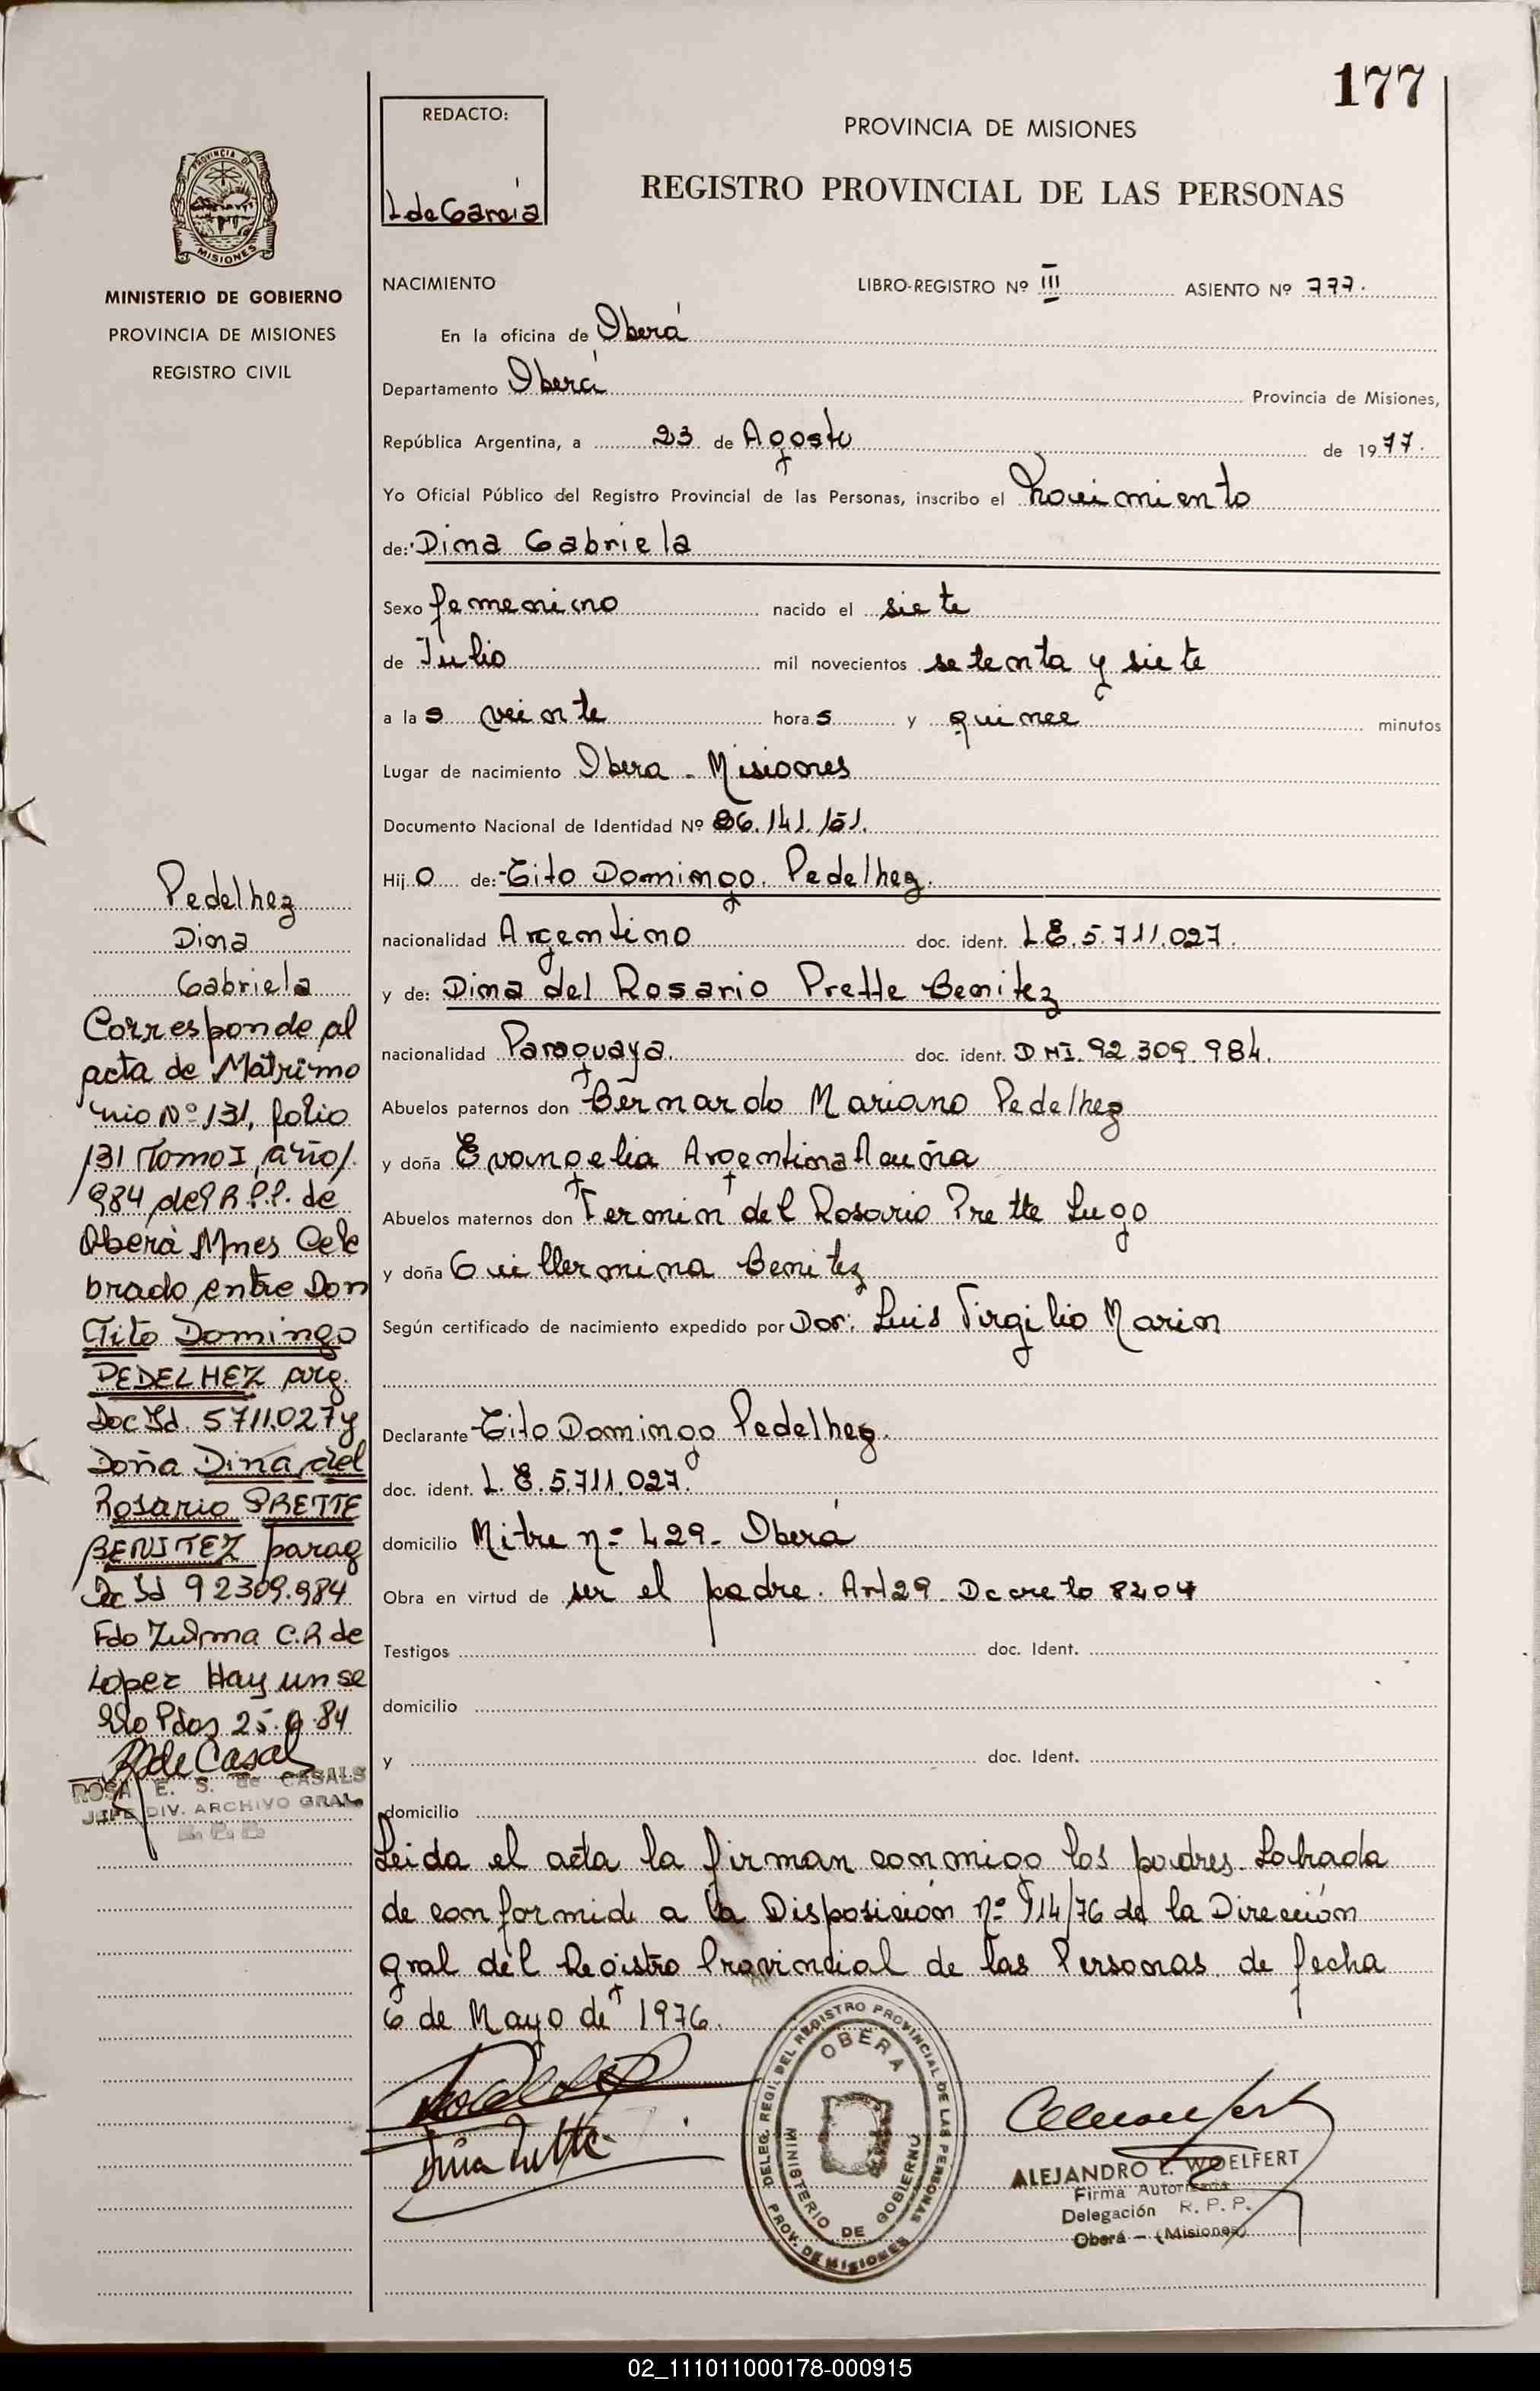 177
REDACTO:
L de Garcia
PROVINCIA DE MISIONES
REGISTRO PROVINCIAL DE LAS PERSONAS
PROVINCIA DE
MISIONES
MINISTERIO DE GOBIERNO
PROVINCIA DE MISIONES
REGISTRO CIVIL
NACIMIENTO LIBRO-REGISTRO Nº III ASIENTO Nº 777.
En la oficina de Oberá
Departamento Oberá Provincia de Misiones,
República Argentina, a 23 de Agosto de 1977.
Yo Oficial Público del Registro Provincial de las Personas, inscribo el
de: Dina Gabriela
Sexo femenino nacido el siete
de Julio mil novecientos setenta y siete
a las veinte horas y quince minutos
Lugar de nacimiento Obera - Misiones
Documento Nacional de Identidad Nº 26.141.151.
Hijo de: Tito Domingo Pedelhez.
nacionalidad Argentino doc. ident. L.E. 5.711.027.
y de: Dina del Rosario Prette Benitez
nacionalidad Paraguaya. doc. ident. DNI. 92.309.984.
Abuelos paternos don Bernardo Mariano Pedelhez
y doña Evangelia Argentina Acuña
Abuelos maternos don Fermin del Rosario Prette Lugo
y doña Guillermina Benitez
Según certificado de nacimiento expedido por Dor: Luis Virgilio Marin
Declarante Tito Domingo Pedelhez.
doc. ident. L.E. 5.711.027.
domicilio Mitre nº 429 - Oberá
Obra en virtud de ser el padre. Art 29 Decreto 8204
Testigos doc. Ident.
domicilio
y doc. Ident.
domicilio
Leida el acta la firman conmigo los padres. Labrada
de conformid. a la Disposición nº 114/76 de la Dirección
gral del Registro Provincial de las Personas de fecha
6 de Mayo de 1976.
Pedelhez
Dina
Gabriela
Corresponde al
acta de Matrimo
nio Nº 131, folio
131 Tomo I, año 1.
984 del R.P.P. de
Oberà Mnes Cele
brado entre Don
Tito Domingo
PEDELHEZ arg.
Doc Id. 5711.027 y
Doña Dina del
Rosario PRETTE
BENITEZ parag
Doc Id 92309.984
Fdo Zulma C.R de
Lopez Hay un se
llo Pdas 25.9.84
R de Casal
ROSA E. S. de CASALS
JEFE DIV. ARCHIVO GRAL.
Dina Prette
DELEG. REGI. DEL REGISTRO PROVINCIAL DE LAS PERSONAS
OBERA
MINISTERIO DE GOBIERNO
PROV. DE MISIONES
ALEJANDRO E. WOELFERT
Firma Autorizada
Delegación R. P. P.
Oberá - (Misiones)
02_111011000178-000915